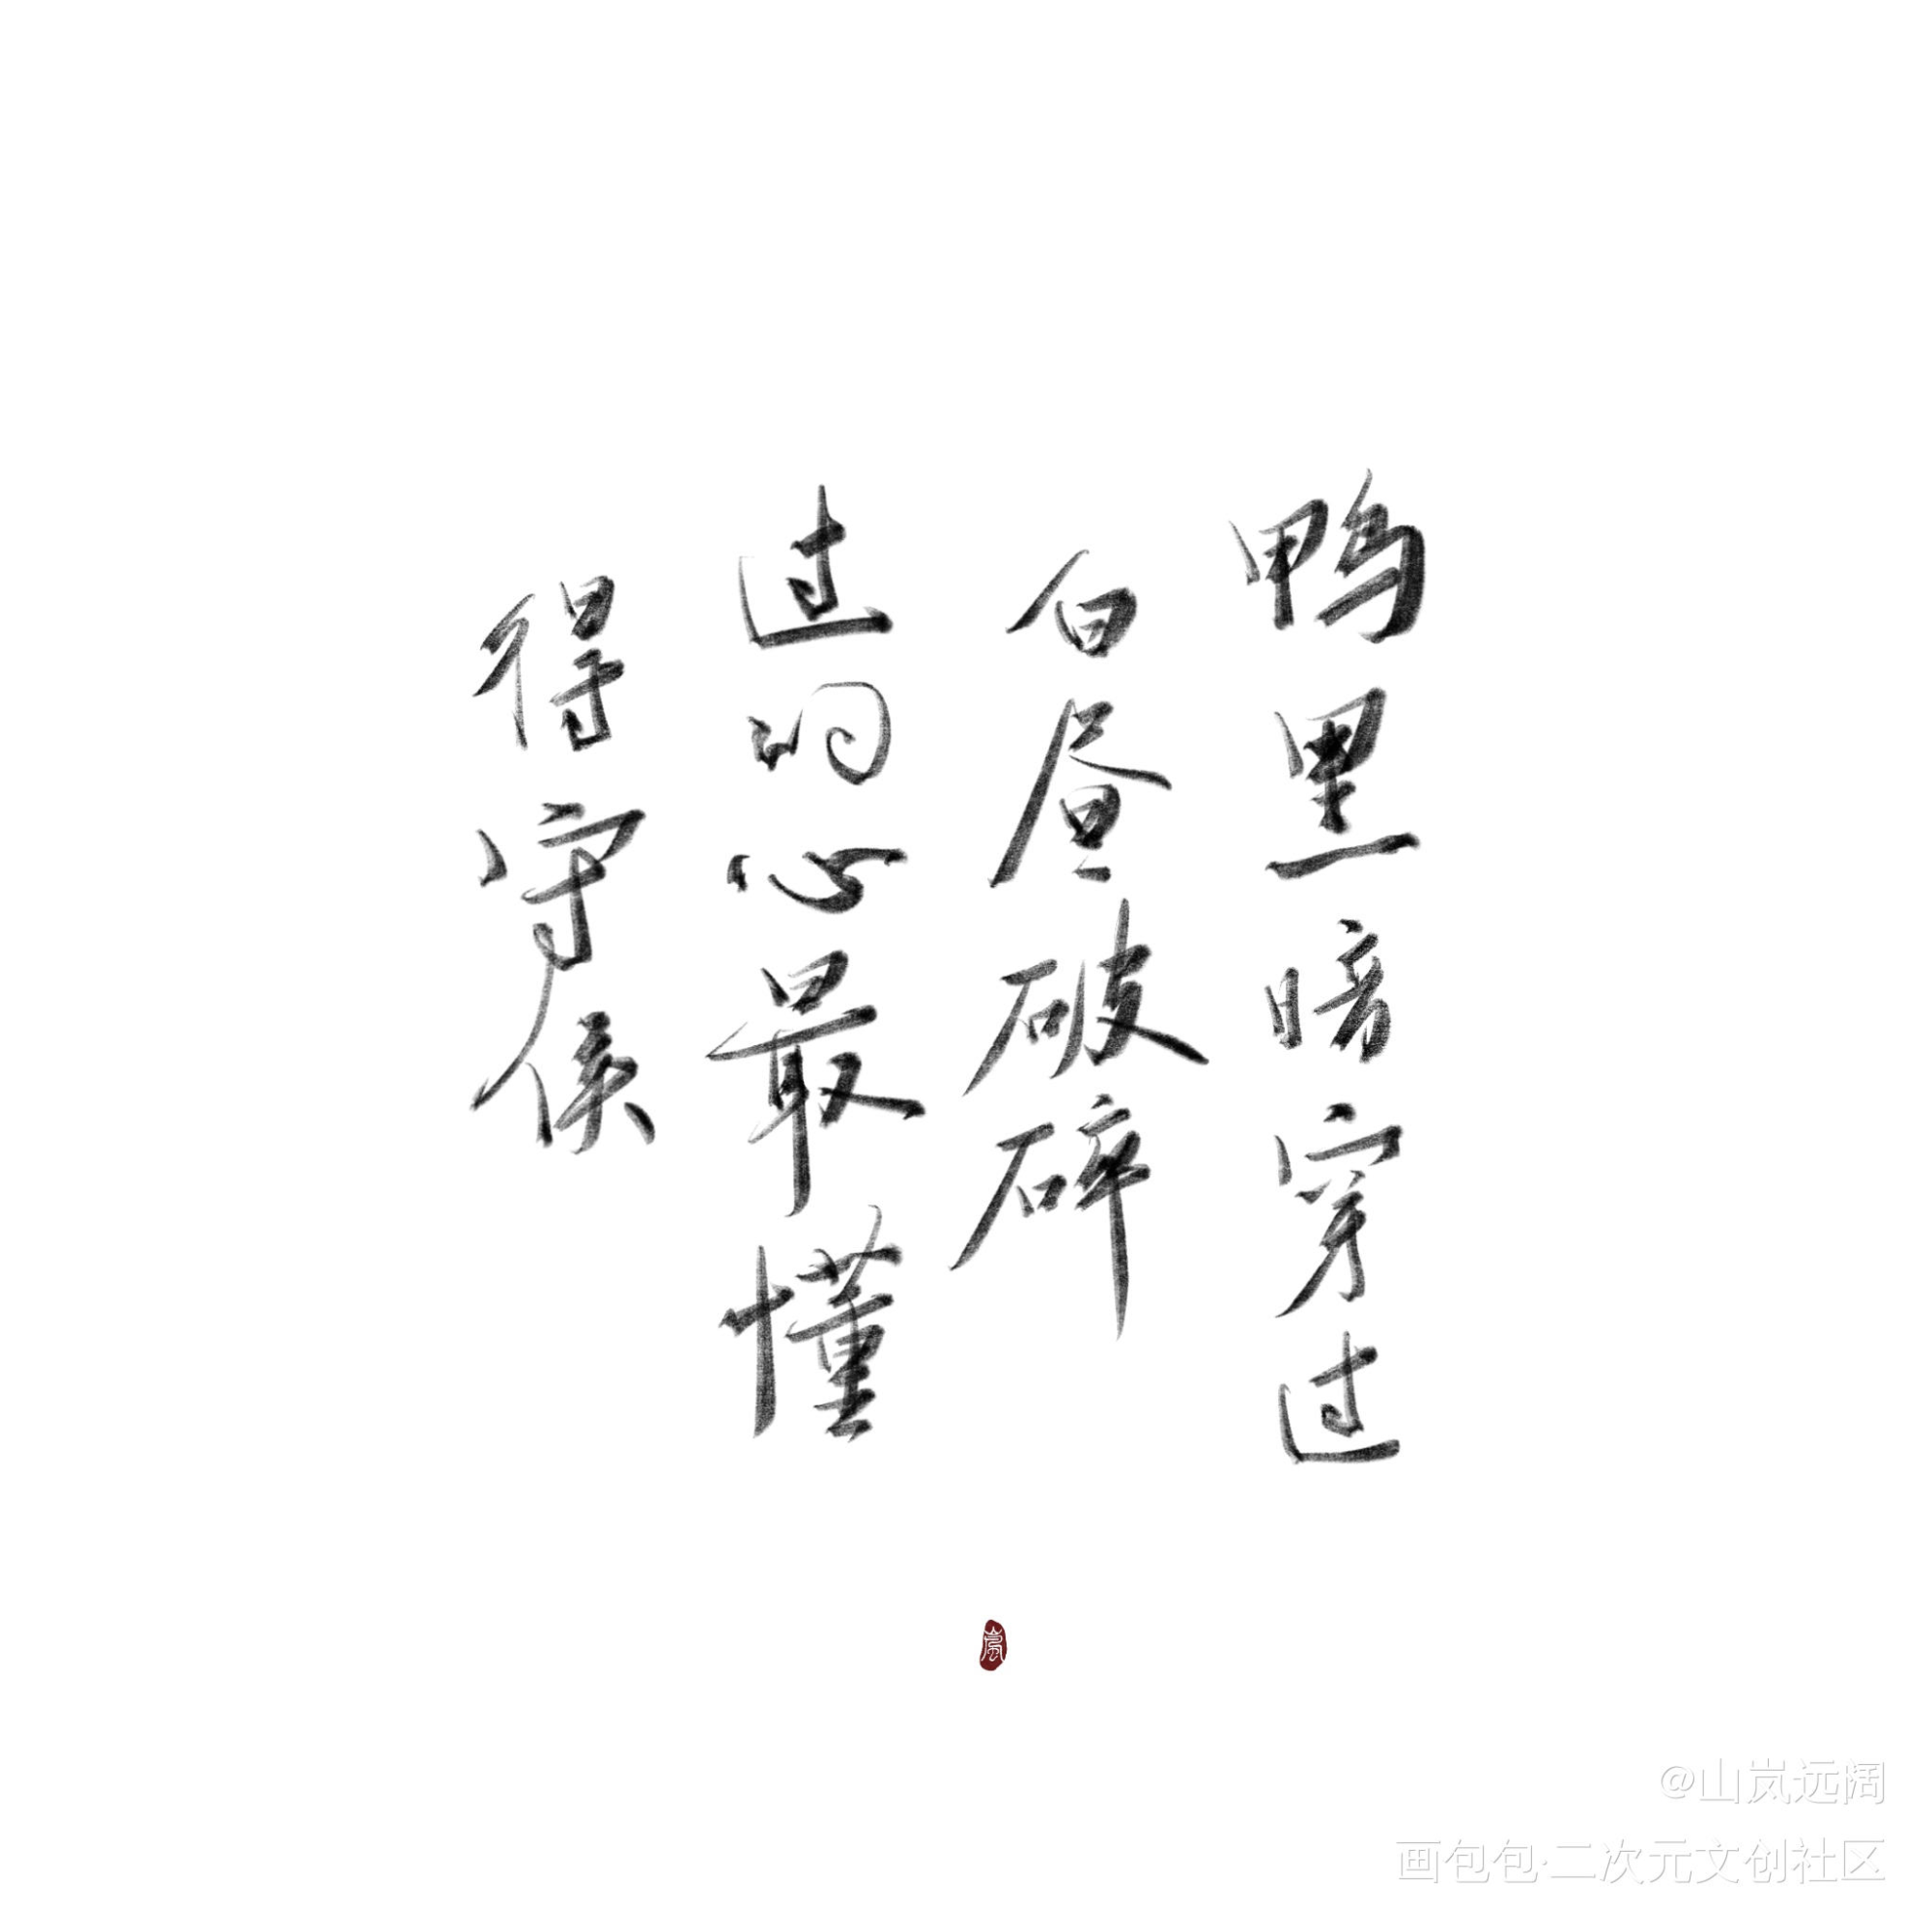 鸭黑暗穿过
白昼破碎
过的心最懂
得守候
岚
@山岚远阔
画包包·二次元文创社区